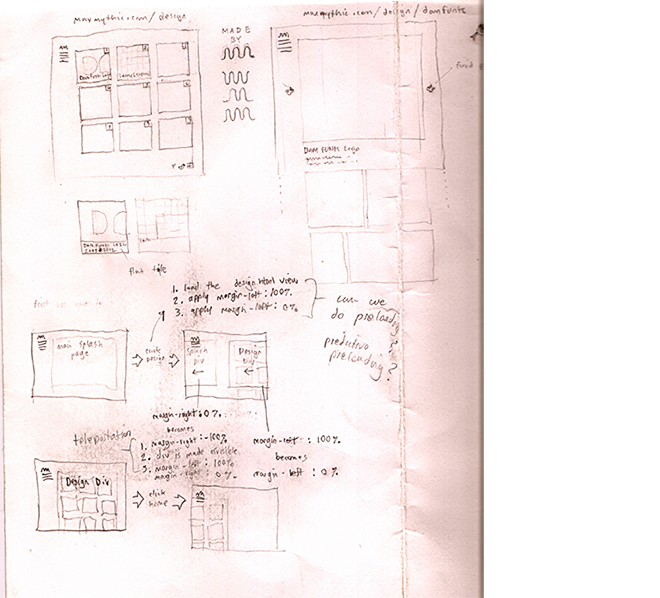 maxmythic.com/design
MADE
BY
maxmythic.com/design/damfunk
Dam Funk Logo
Dam Funk Logo
flat tile
1. load the design html view
2. apply margin-left: 100%
3. apply margin-left: 0%
can we
do preloading
?
predictive
preloading?
main splash
page
click
design
Splash
Div
Design
Div
margin-right: 0%
becomes
teleportation
1. margin-right: -100%
2. div is made invisible
3. margin-left: 100%
margin-right: 0%
margin-left: 100%
becomes
margin-left: 0%
Design Div
click
home